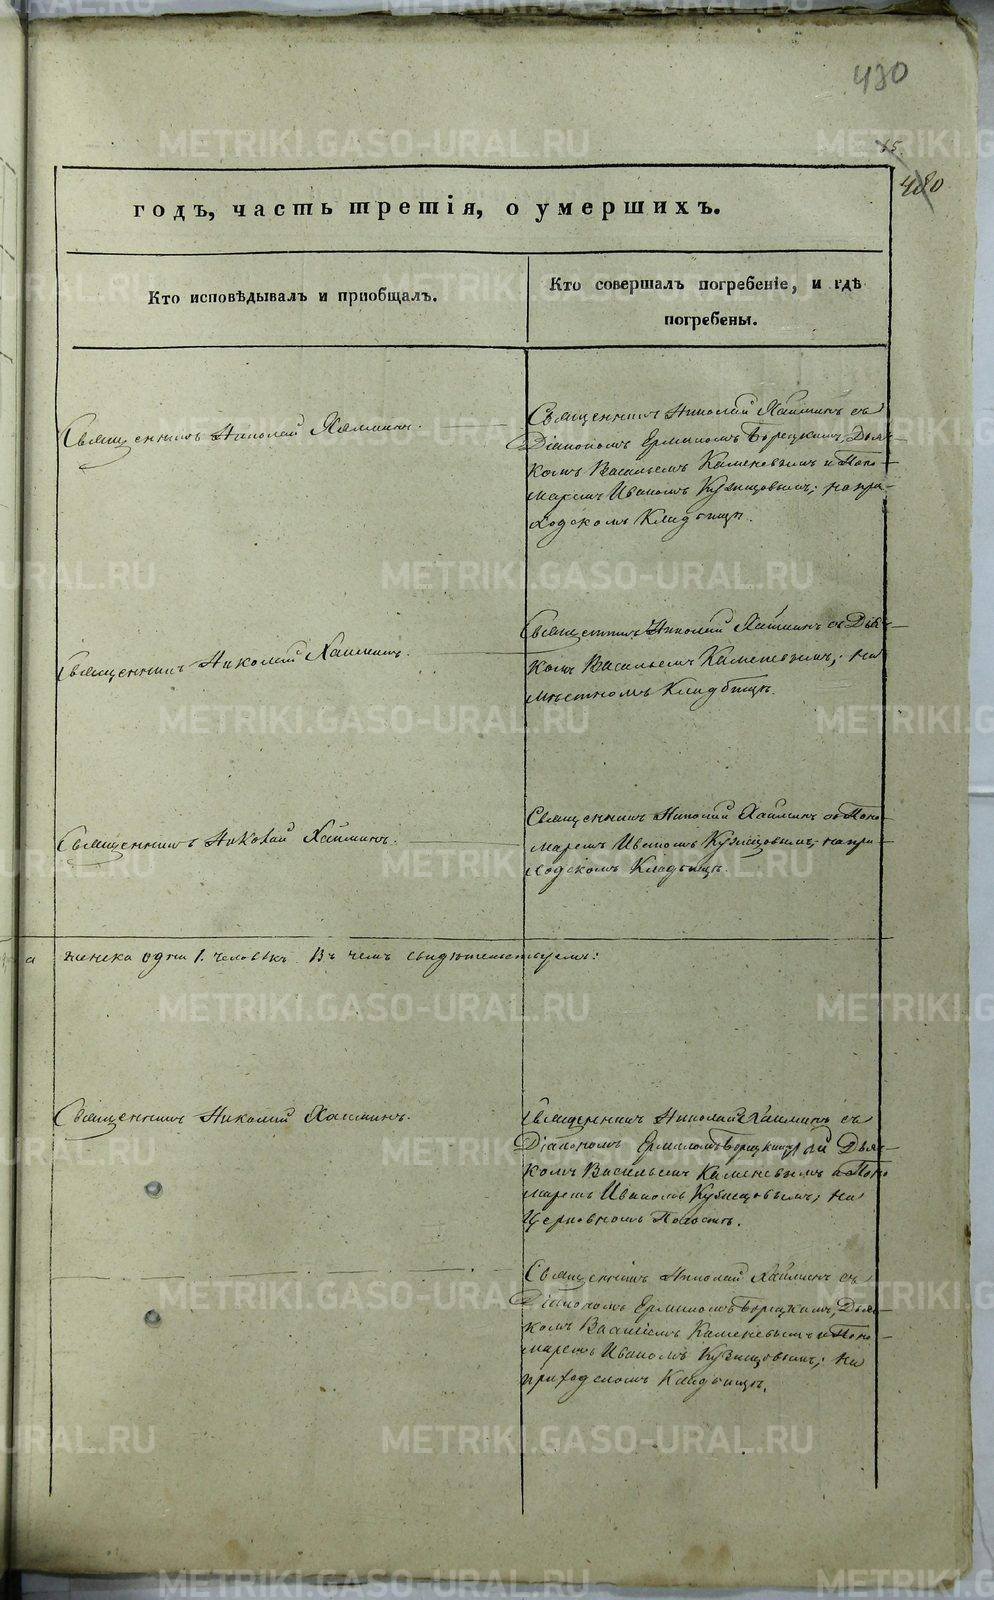 430
15.
480
годъ, часть третія, о умершихъ.
Кто исповѣдывалъ и пріобщалъ.
Кто совершалъ погребеніе, и гдѣ
погребены.
Священникъ Николай Хаминъ.
Священникъ Николай Хаминъ съ
Діакономъ Ермиломъ Борецкимъ, Дьяч-
комъ Васильемъ Каменевымъ и Поно-
маремъ Иваномъ Кузнецовымъ; на при-
ходскомъ Кладбищѣ.
Священникъ Николай Хаминъ.
Священникъ Николай Хаминъ съ Дьяч-
комъ Васильемъ Каменевымъ; на
мѣстномъ Кладбищѣ.
Священникъ Николай Хаминъ.
Священникъ Николай Хаминъ съ Поно-
маремъ Иваномъ Кузнецовымъ; на при-
ходскомъ Кладбищѣ.
а женска одна 1. человѣкъ. Въ чемъ свидѣтельствуемъ:
Священникъ Николай Хаминъ.
Священникъ Николай Хаминъ съ
Діакономъ Ермиломъ Борецкимъ, Дьяч-
комъ Васильемъ Каменевымъ и Поно-
маремъ Иваномъ Кузнецовымъ; на
Церковномъ Погостѣ.
Священникъ Николай Хаминъ съ
Діакономъ Ермиломъ Борецкимъ, Дьяч-
комъ Васильемъ Каменевымъ и Поно-
маремъ Иваномъ Кузнецовымъ; на
приходскомъ Кладбищѣ.
METRIKI.GASO-URAL.RU